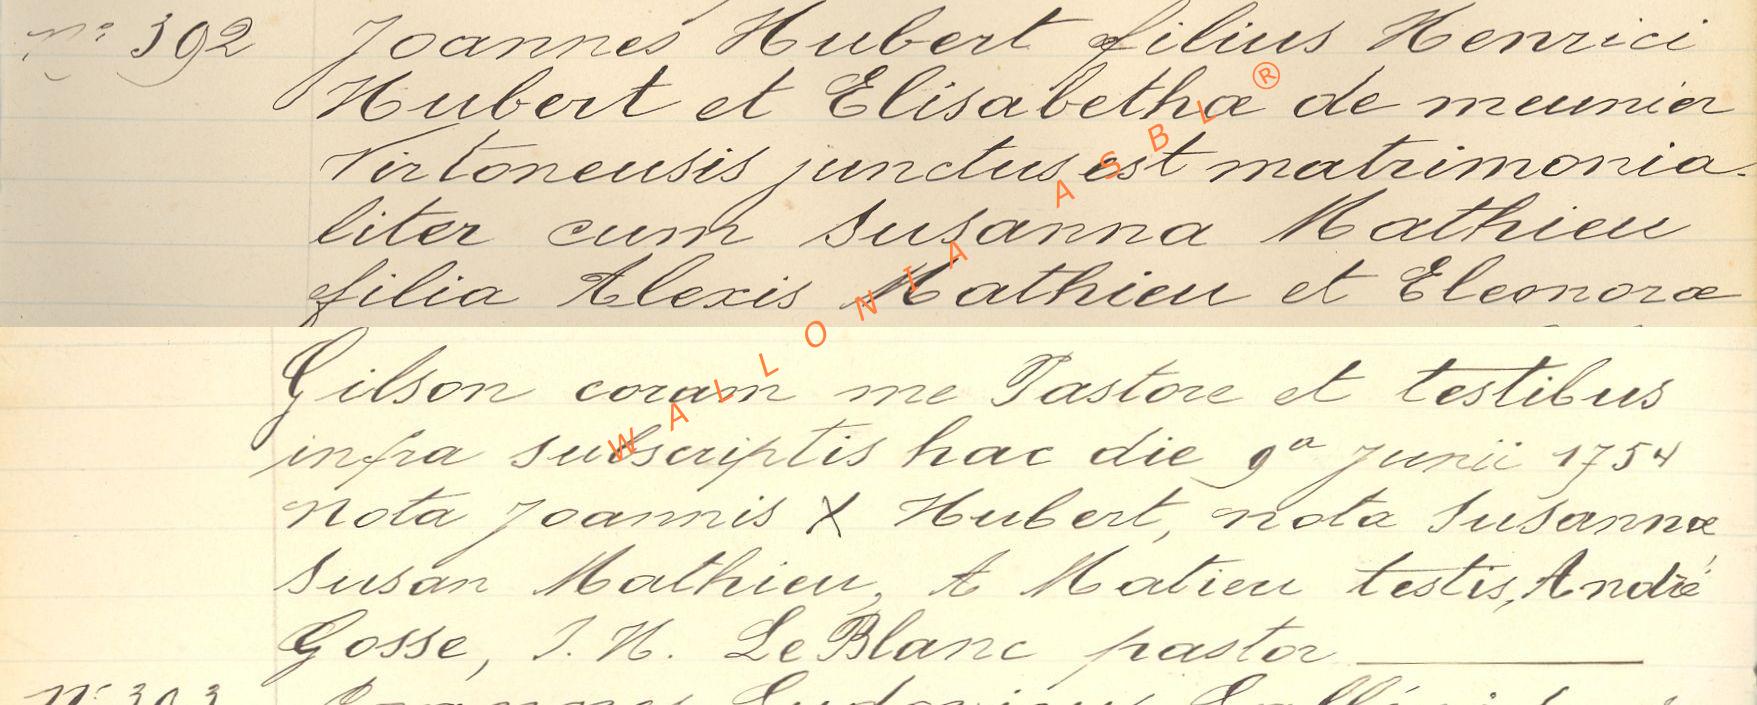 nº 392 Joannes Hubert filius Henrici
Hubert et Elisabethæ de meunier
Virtonensis junctus est matrimonia-
liter cum Susanna Mathieu
filia Alexis Mathieu et Eleonoræ
Gilson coram me Pastore et testibus
infra subscriptis hac die 9ª Junii 1754
Nota Joannis X Hubert, nota Susannæ
Susan Mathieu, A Matieu testis, André
Gosse, J. H. LeBlanc pastor
nº 393 Joannes Ludovicus
WALLONIA ASBL ®